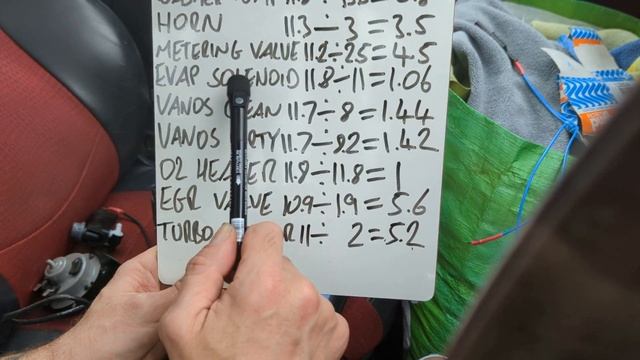 HORN 11.3÷3=3.5
METERING VALVE 11.2÷2.5=4.5
EVAP SOLENOID 11.8÷11=1.06
VANOS 11.7÷8=1.44
VANOS 11.7÷8.2=1.42
O2 HEATER 11.8÷11.8=1
EGR VALVE 10.9÷1.9=5.6
TURBO 11÷ 2=5.2